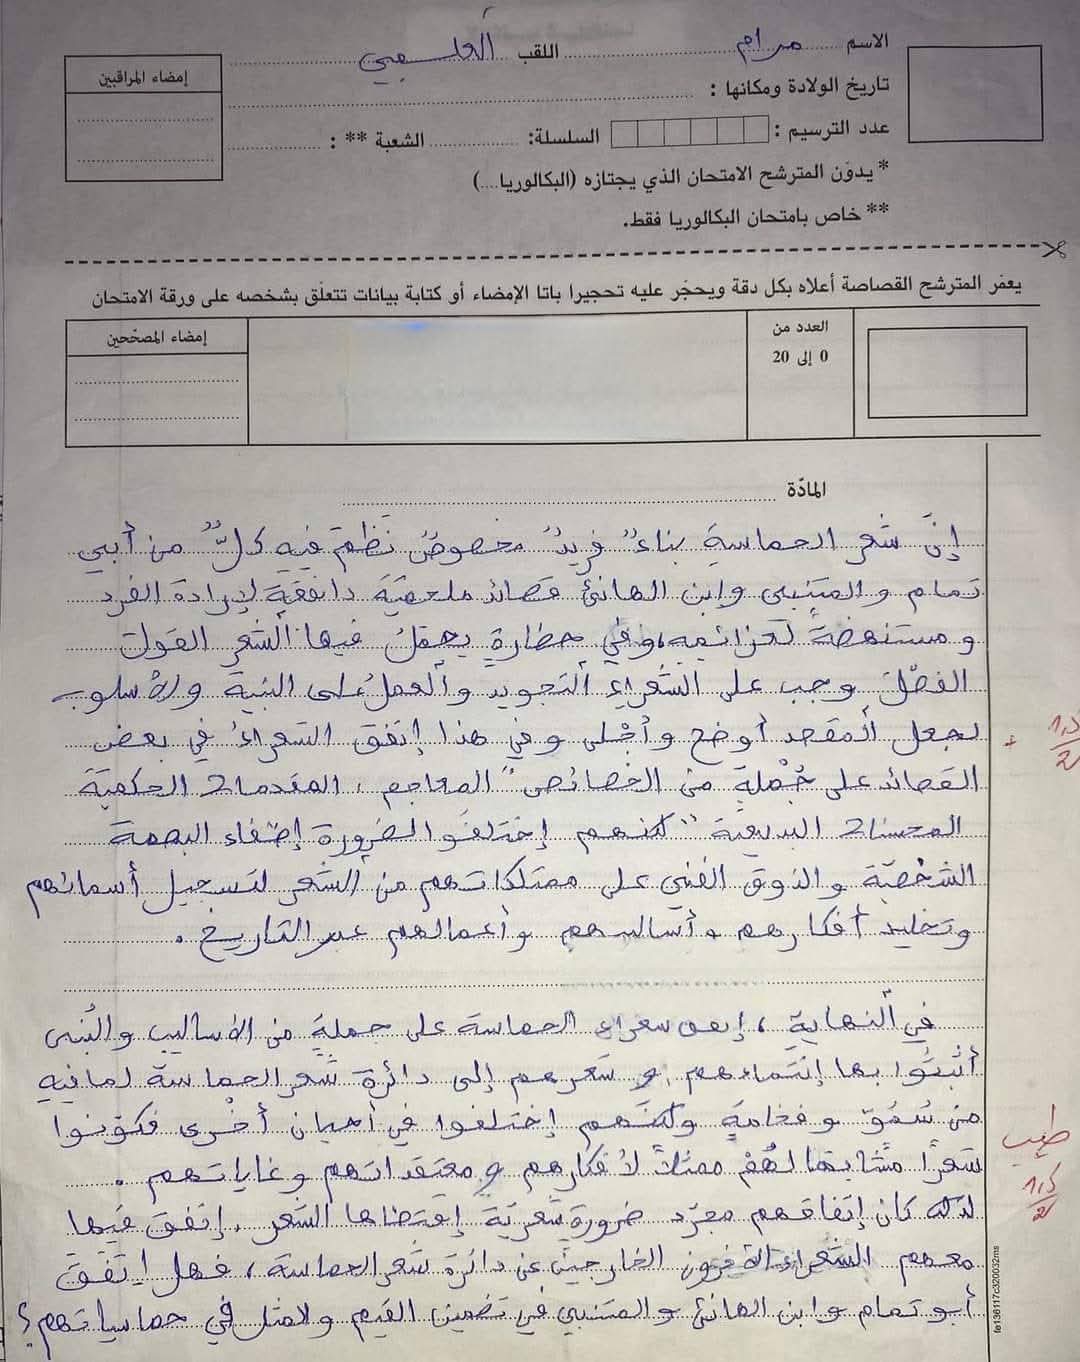 الاسم مرام اللقب القاسمي
إمضاء المراقبين
تاريخ الولادة ومكانها :
عدد الترسيم : السلسلة: الشعبة ** :
* يدوّن المترشح الامتحان الذي يجتازه (البكالوريا...)
** خاص بامتحان البكالوريا فقط.
يعمّر المترشح القصاصة أعلاه بكل دقة ويحجّر عليه تحجيرا باتا الإمضاء أو كتابة بيانات تتعلّق بشخصه على ورقة الامتحان
العدد من
0 إلى 20
إمضاء المصحّحين
المادّة
إنّ شعر الحماسة بناءٌ فريدٌ مخصوصٌ نَظمَ فيه كلٌّ من أبي
تمام والمتنبي وابن الهانئ قصائد ملحميّة دافقة لإرادة الفرد
ومستنهضة لعزائمه، وفي حضارة يمثّل فيها الشعر القول
الفصل وجب على الشعراء التجويد والعمل على البنية والأسلوب
لجعل المقصد أوضح وأجلى وفي هذا إتفق الشعراء في بعض
القصائد على جُملة من الخصائص "المعاجم، المقدمات الحكميّة
المحسنات البديعيّة" لكنهم إختلفوا لضرورة إضفاء البصمة
الشخصيّة والذوق الفني على ممتلكاتهم من الشعر لتسجيل أسمائهم
وتخليد أفكارهم وأساليبهم وأعمالهم عبر التاريخ.
1,5
2
في النهاية، إتفق شعراء الحماسة على جملة من الأساليب والبُنى
أثبتُوا بها إنتماءهم وشعرهم إلى دائرة شعر الحماسة لما فيه
من سُمُوّ وفخامة ولكنّهم إختلفوا في أحيان أخرى فكوّنوا
شعرًا مشابها لهُمْ ممثلا لأفكارهم ومعتقداتهم وغاياتهم.
لذلك كان إتفاقهم مجرّد ضرورة شعريّة إقتضاها الشعر، إتفق فيها
معهم الشعراء الآخرون الخارجين عن دائرة شعر الحماسة، فهل اتفق
أبو تمام وابن الهانئ والمتنبي في تضمين القيم والمثل في حماسياتهم؟
طيب
1,5
2